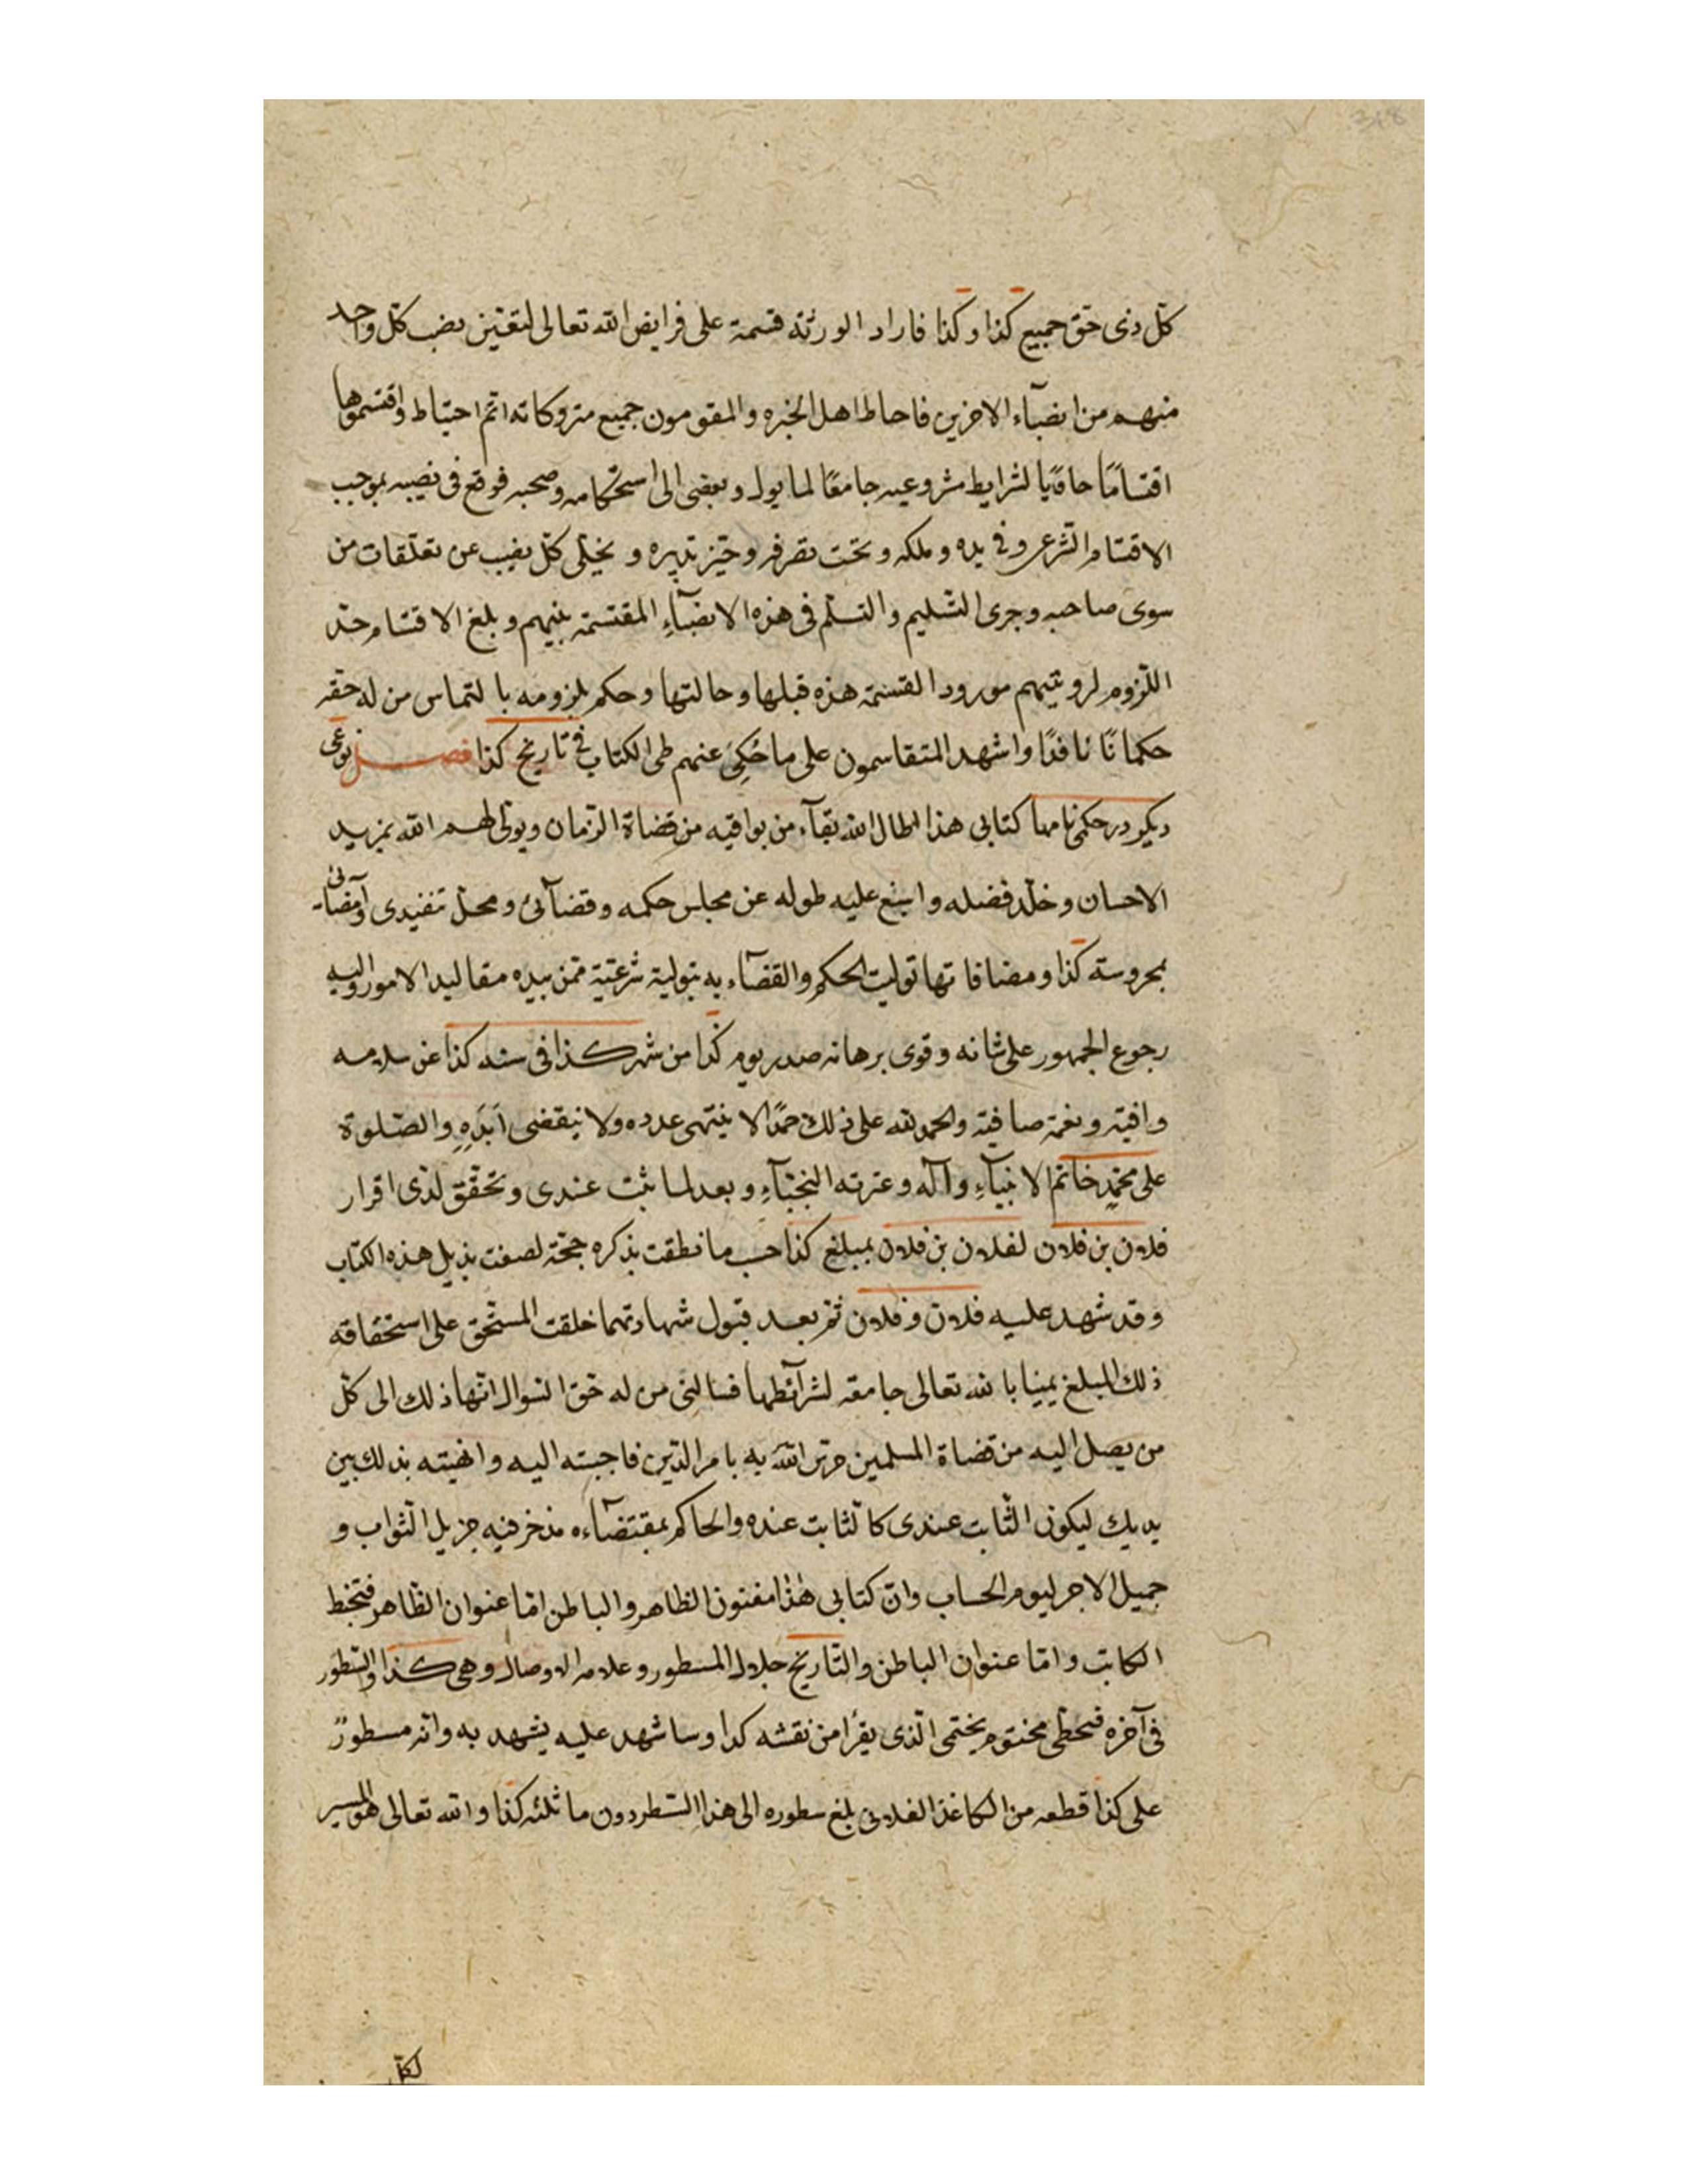 كل ذی حق جمیع كذا و كذا فاراد الورثة قسمة علی فرایض الله تعالی لتعیین نصیب كل واحد
منهم من انصبآء الاخرین فاحاط اهل الخبره والمقومون جمیع متروكاته اتم احتیاط واقتسموها
اقتسامًا حاویًا لشرایط مشروعیه جامعًا لما یول و یفضی الی استحكامه وصحبه فوقع فی نصیبه بموجب
الاقتسام الشرعی و فی یده و ملكه و تحت تصرفه و حیز تدبیره و یخلی كل نصیب عن تعلقات من
سوی صاحبه وجری التسلیم والتسلم فی هذه الانصبآءِ المقتسمة بینهم و بلغ الاقتسام حد
اللزوم لرویتهم مورود القسمة هذه قبلها و حالتها و حكم بلزومه بالتماس من له حقه
حكما نًا نافدًا واشهد المتقاسمون علی ما حُكِیَ عنهم طی الكتاب فی تاریخ كذا فصل نوعی
دیكر در حكمی نامها كتابی هذا اطال الله بقآء من یوافیه من قضاة الزمان ویولی لهم الله بمزید
الاحسان و خلد فضله و اسبغ علیه طوله عن مجلس حكمه و قضآئی و محل تنفیدی وآمضائی
بمحروسة كذا و مضافاتها تولیت الحكم والقضآء به بتولیة شرعیة ممن بیده مقالید الامور والیه
رجوع الجمهور علی شانه و قوی برهانه صدر یوم كذا من شهر كذا فی سنه كذا عن سلامه
وافیة و نعمة صافیة والحمد لله علی ذلك حمدًا لا ینتهی عدده ولا ینقضی اَبَدَهِ والصلوة
علی محمدٍ خاتم الانبیآءِ وآله و عترته النجبآءِ و بعد لما ثبت عندی و تحقق لدی اقرار
فلان بن فلان لفلان بن فلان بمبلغ كذا حسب ما نطقت بذكره حجة لصفت بذیل هذه الكتاب
و قد شهد علیه فلان و فلان ثم بعد قبول شهادتهما خلقت المستحق علی استحقاقه
ذلك المبلغ یمینا بالله تعالی جامعة لشرآئطها فسالنی من له حق السوال انها ذلك الی كل
من یصل الیه من قضاة المسلمین حرس الله به بامر الدین فاجبته الیه و انهیته بذلك بین
یدیك لیكون الثابت عندی كالثابت عنده والحاكم بمقتضآءه مدخر فیه جزیل الثواب و
جمیل الاجر لیوم الحساب وان كتابی هذا مفنون الظاهر والباطن اما عنوان الظاهر فبخط
الكاتب واما عنوان الباطن والتاریخ خلال المسطور و علامه الاوصال و هی كذا والسطور
فی آخره فبخطی مختوم بختمی الذی یقرأ من نقشه كدا و ساشهد علیه یشهد به وانه مسطورٌ
علی كذا قطعه من الكاغذ الفلانی بلغ سطوره الی هذا السطر دون ما ثلثه كذا والله تعالی هو المیسر
لكل